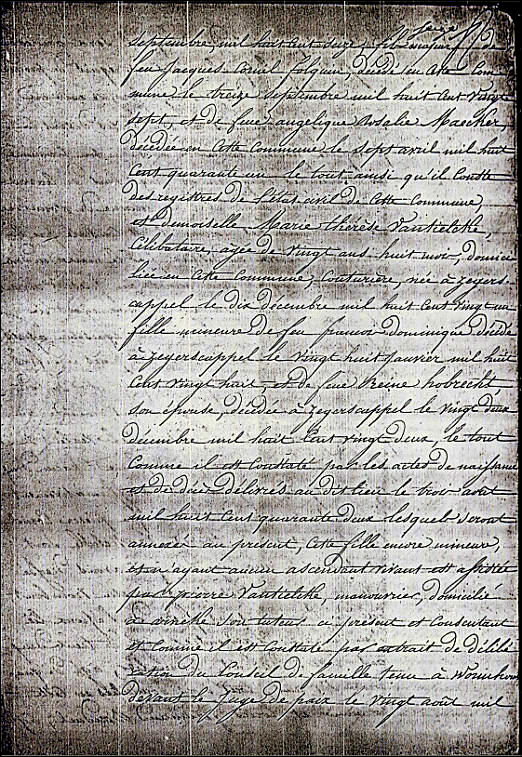 septembre mil huit cent seize, fils majeur de
feu Jacques Cornil Folquin, décédé en cette com
mune le treize septembre mil huit cent vingt
sept, et de feue angélique Rosalie Maecker,
décédée en cette commune le sept avril mil huit
cent quarante un le tout ainsi qu'il conste
des registres de l'état civil de cette commune,
et demoiselle Marie thérèse Vantielcke,
célibataire, agée de vingt ans huit mois, domici
liée en cette commune, couturière, née à zegers
cappel le dix décembre mil huit cent vingt un
fille mineure de feu françois Dominique décédé
à zegerscappel le vingt huit Janvier mil huit
cent vingt huit, et de feue Reine hobrecht
son épouse, décédée à zegerscappel le vingt deux
décembre mil huit cent vingt deux, le tout
comme il est constaté par les actes de naissance
et de décès délivrés au dit lieu le trois août
mil huit cent quarante deux lesquels seront
annexés au présent, cette fille encore mineure,
et n'ayant aucun ascendant vivant est assistée
par pierre Vantielcke, manouvrier, domicilié
à son tuteur ci présent et consentant
et comme il est constaté par extrait de délibé
ration du Conseil de famille tenu à Wormhout
devant le Juge de paix le vingt août mil